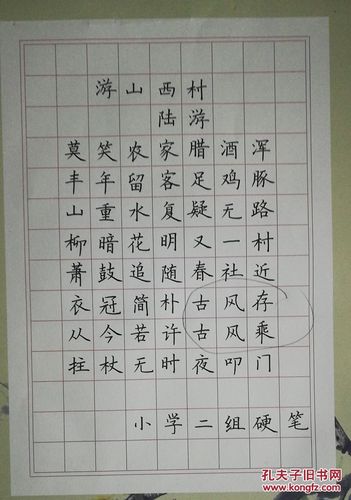 游山西村
陆游
莫笑农家腊酒浑
丰年留客足鸡豚
山重水复疑无路
柳暗花明又一村
萧鼓追随春社近
衣冠简朴古风存
从今若许古风乘
拄杖无时夜叩门
小学二组硬笔
孔夫子旧书网
www.kongfz.com